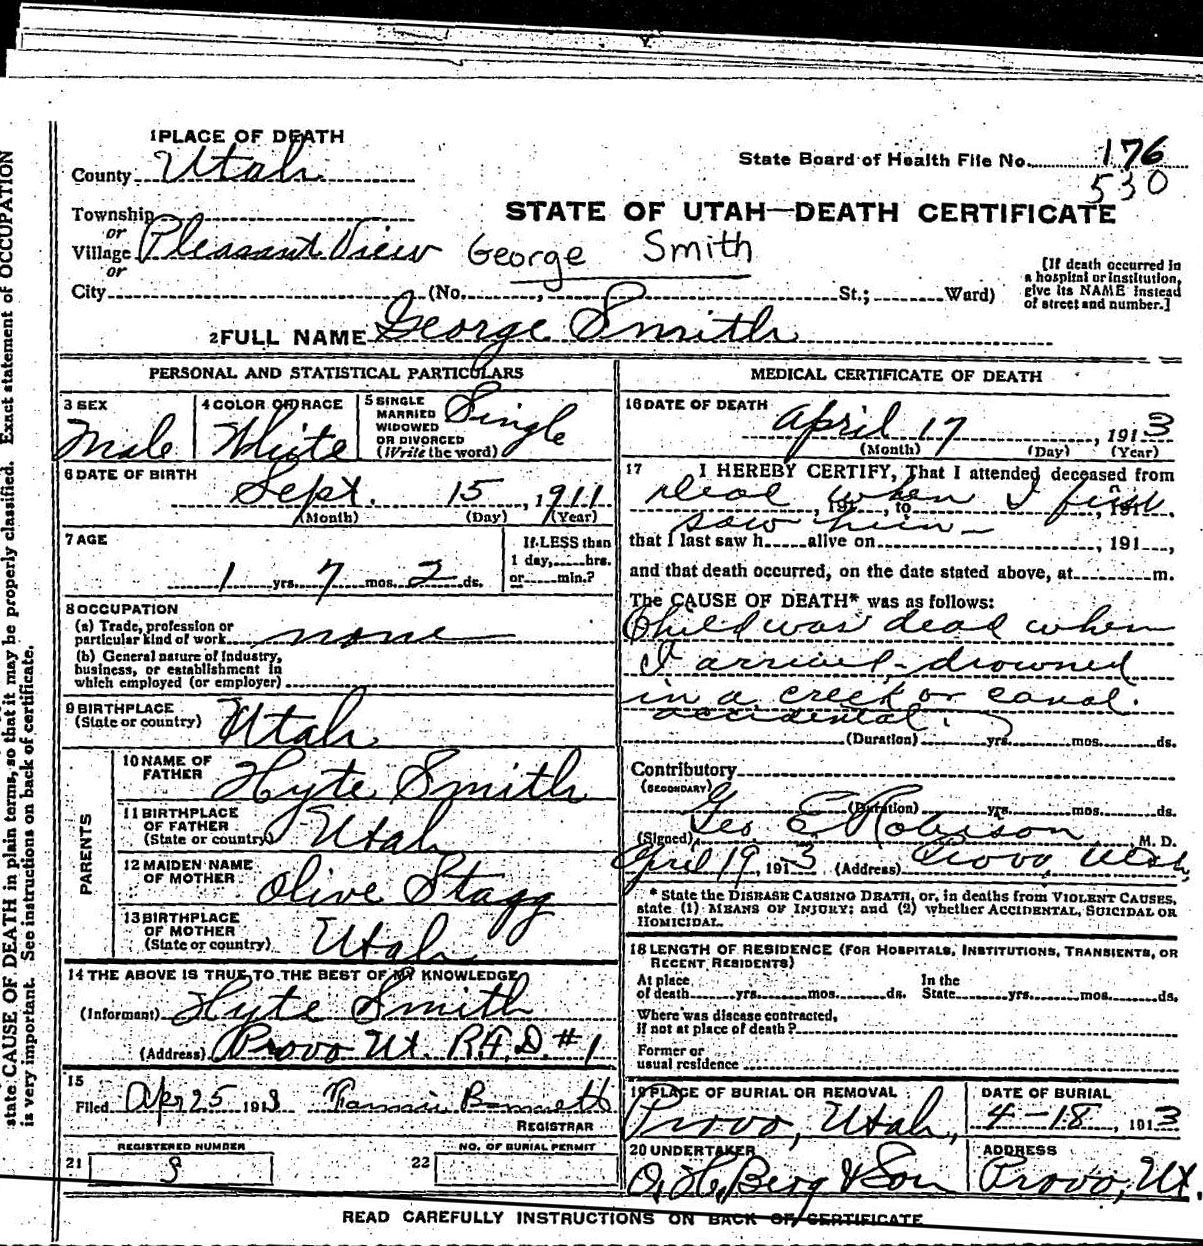 state CAUSE OF DEATH in plain terms, so that it may be properly classified. Exact statement of OCCUPATION
is very important. See instructions on back of certificate.
1 PLACE OF DEATH
County Utah
State Board of Health File No. 176
530
Township
or
Village Pleasant View
or
City (No. , St.; Ward)
STATE OF UTAH—DEATH CERTIFICATE
George Smith
[If death occurred in
a hospital or institution,
give its NAME instead
of street and number.]
2 FULL NAME George Smith
PERSONAL AND STATISTICAL PARTICULARS
3 SEX
Male
4 COLOR OR RACE
White
5 SINGLE
MARRIED
WIDOWED
OR DIVORCED
(Write the word)
Single
6 DATE OF BIRTH
Sept. 15, 1911
(Month) (Day) (Year)
7 AGE
1 yrs. 7 mos. 2 ds.
If LESS than
1 day, hrs.
or min.?
8 OCCUPATION
(a) Trade, profession or
particular kind of work none
(b) General nature of Industry,
business, or establishment in
which employed (or employer)
9 BIRTHPLACE
(State or country) Utah
PARENTS
10 NAME OF
FATHER Hyte Smith
11 BIRTHPLACE
OF FATHER
(State or country) Utah
12 MAIDEN NAME
OF MOTHER Olive Stagg
13 BIRTHPLACE
OF MOTHER
(State or country) Utah
14 THE ABOVE IS TRUE TO THE BEST OF MY KNOWLEDGE
(Informant) Hyte Smith
(Address) Provo Ut. R.F.D. #1
15
Filed Apr 25 1913
REGISTRAR
REGISTERED NUMBER
21
NO. OF BURIAL PERMIT
22
MEDICAL CERTIFICATE OF DEATH
16 DATE OF DEATH
April 17, 1913
(Month) (Day) (Year)
17 I HEREBY CERTIFY, That I attended deceased from
dead when I first
, 191 , to , 191 .
saw him -
that I last saw h alive on , 191 ,
and that death occurred, on the date stated above, at m.
The CAUSE OF DEATH* was as follows:
Child was dead when
I arrived - drowned
in a creek or canal.
accidental.
(Duration) yrs. mos. ds.
Contributory
(SECONDARY)
(Duration) yrs. mos. ds.
(Signed) Geo E. Robison M. D.
April 19, 1913 (Address) Provo Utah
* State the DISEASE CAUSING DEATH, or, in deaths from VIOLENT CAUSES,
state (1) MEANS OF INJURY; and (2) whether ACCIDENTAL, SUICIDAL OR
HOMICIDAL.
18 LENGTH OF RESIDENCE (FOR HOSPITALS, INSTITUTIONS, TRANSIENTS, OR
RECENT RESIDENTS)
At place
of death yrs. mos. ds.
In the
State yrs. mos. ds.
Where was disease contracted,
if not at place of death?
Former or
usual residence
19 PLACE OF BURIAL OR REMOVAL
Provo, Utah,
DATE OF BURIAL
4-18, 1913
20 UNDERTAKER
O. H. Berg & Son
ADDRESS
Provo, Ut.
READ CAREFULLY INSTRUCTIONS ON BACK OF CERTIFICATE